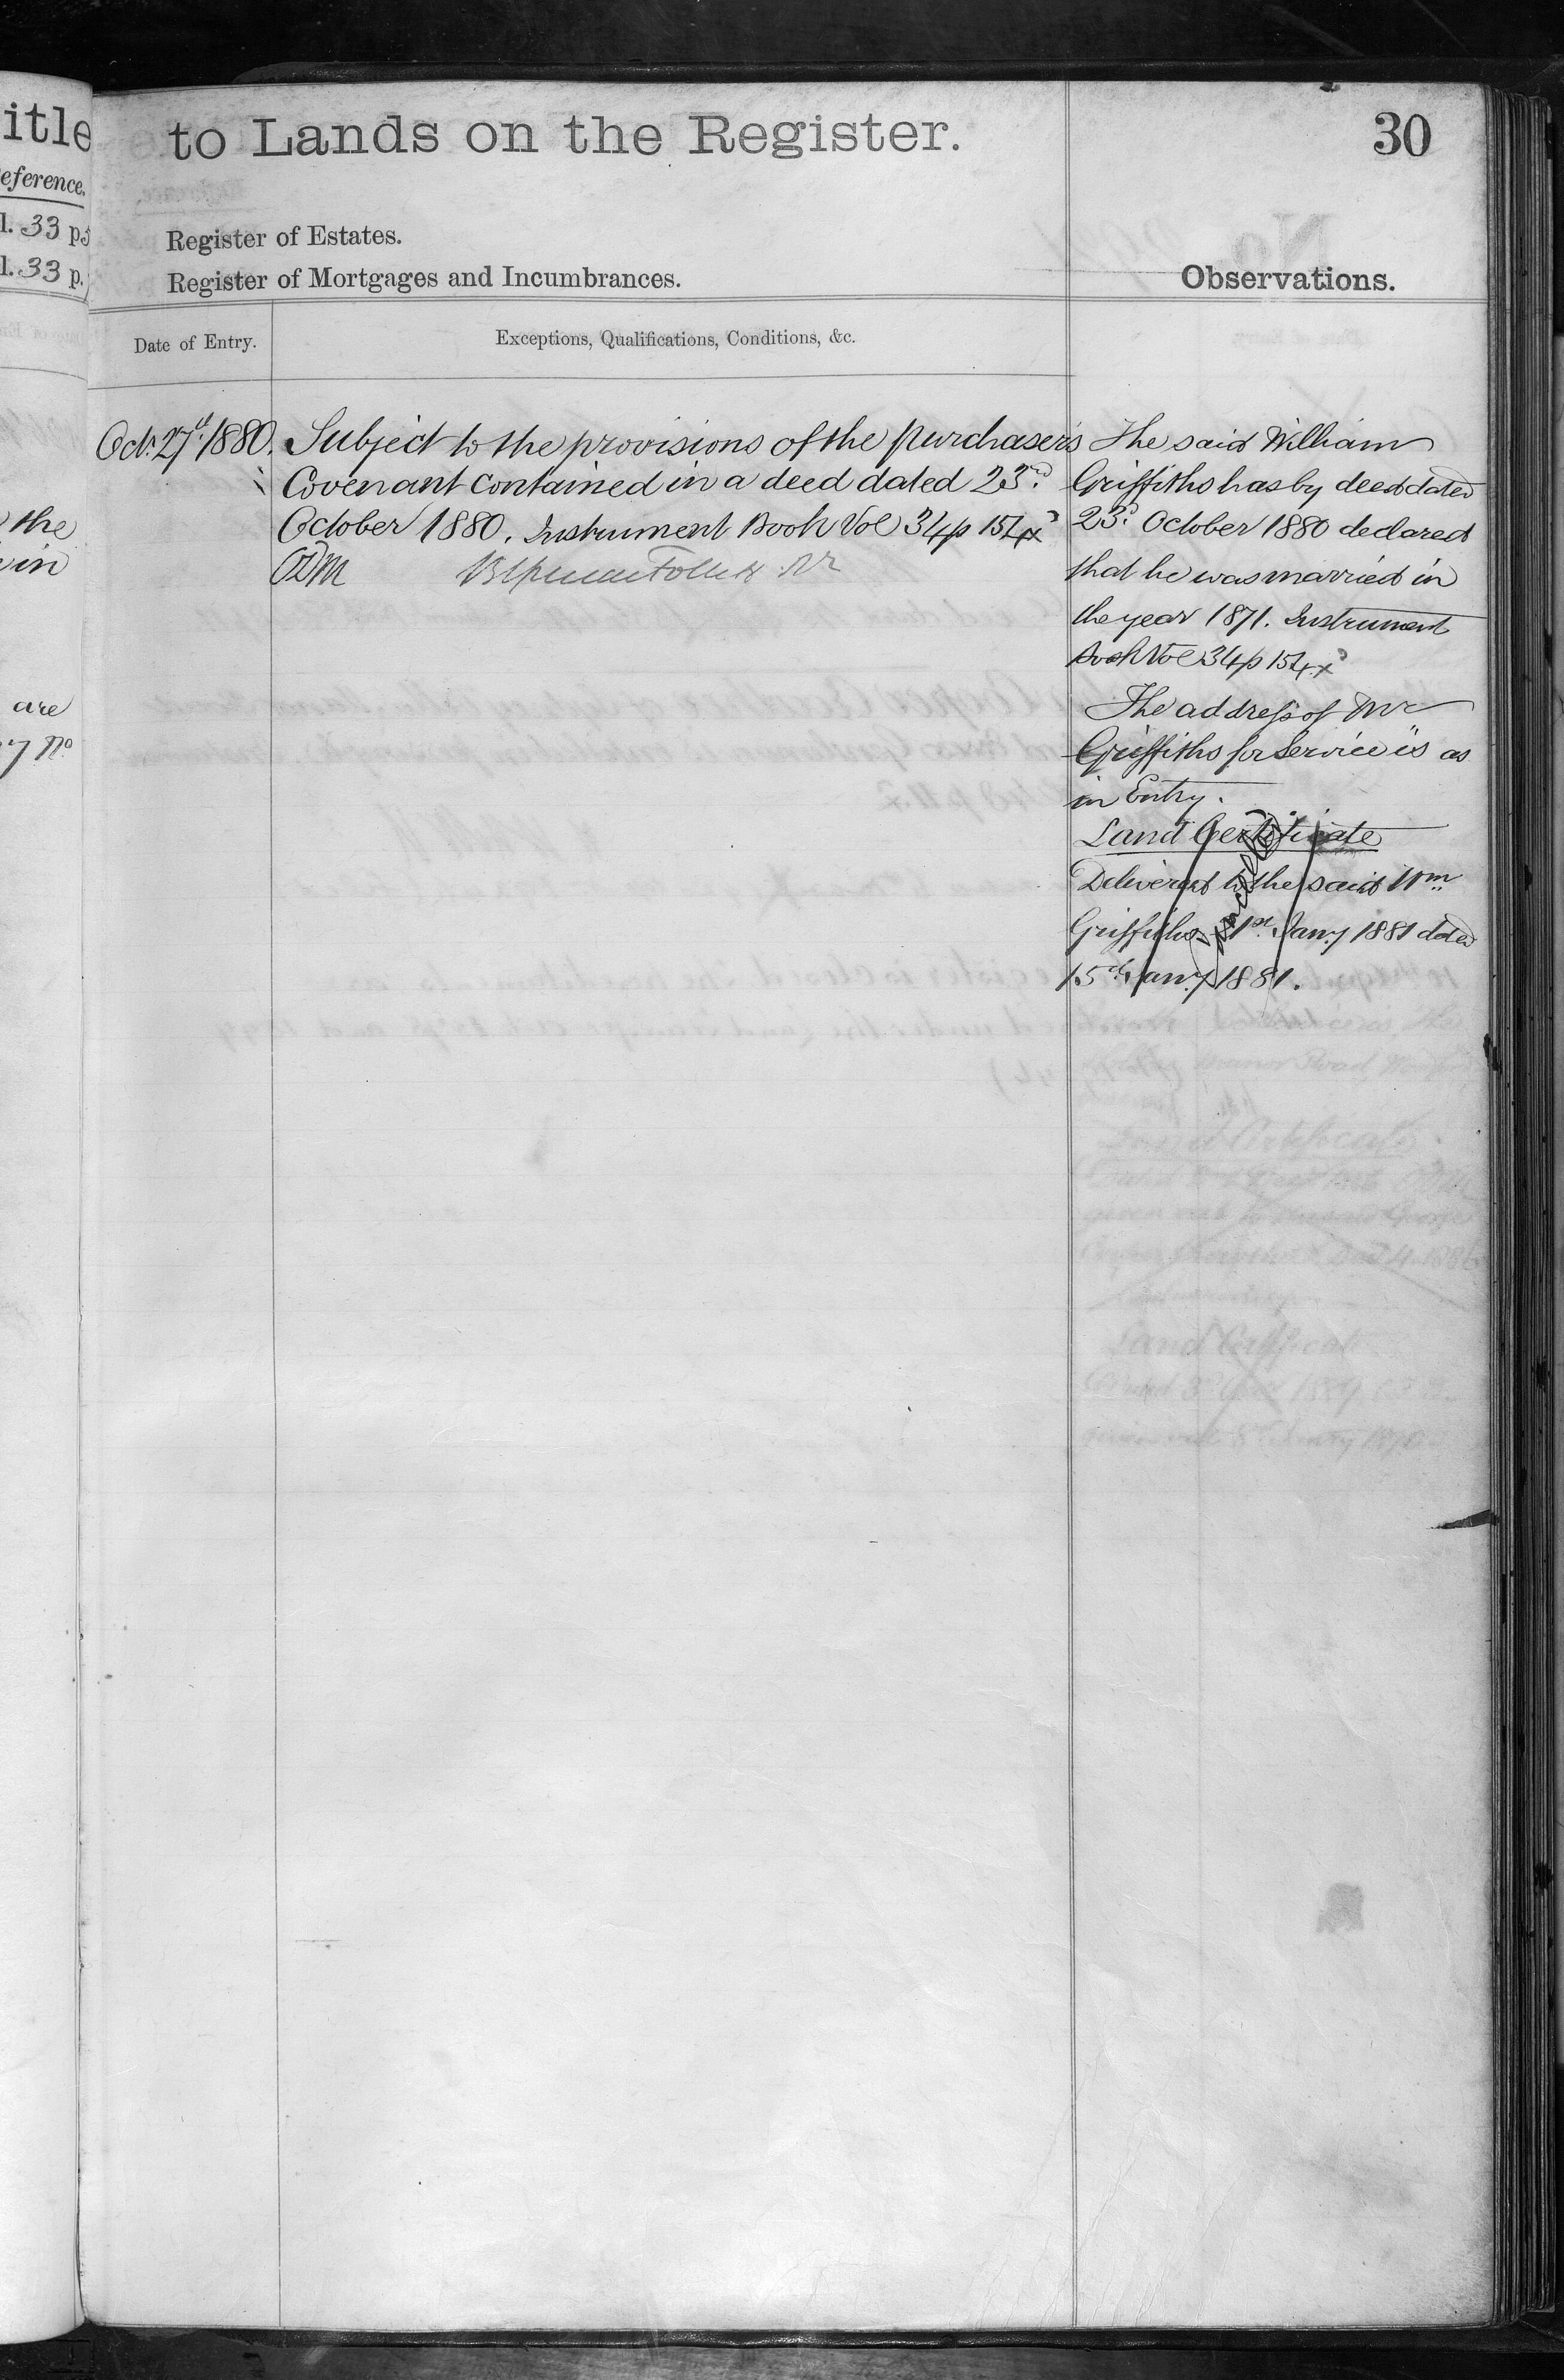 itle
eference.
l. 33 p
l. 33 p.
the
in
are
Nº
to Lands on the Register.
30
Register of Estates.
Register of Mortgages and Incumbrances.
Observations.
Date of Entry.
Exceptions, Qualifications, Conditions, &c.
Oct. 27th 1880.
Subject to the provisions of the purchaser's
Covenant contained in a deed dated 23rd
October 1880. Instrument Book Vol 34 p 154
The said William
Griffiths has by deed dated
23d October 1880 declared
that he was married in
the year 1871. Instrument
Book Vol 34 p 154
The address of Mr
Griffiths for Service is as
in Entry.
Land Certificate
Delivered to the said Wm
Griffiths 21st Jany 1881 dated
15th Jany 1881.
Cancelled